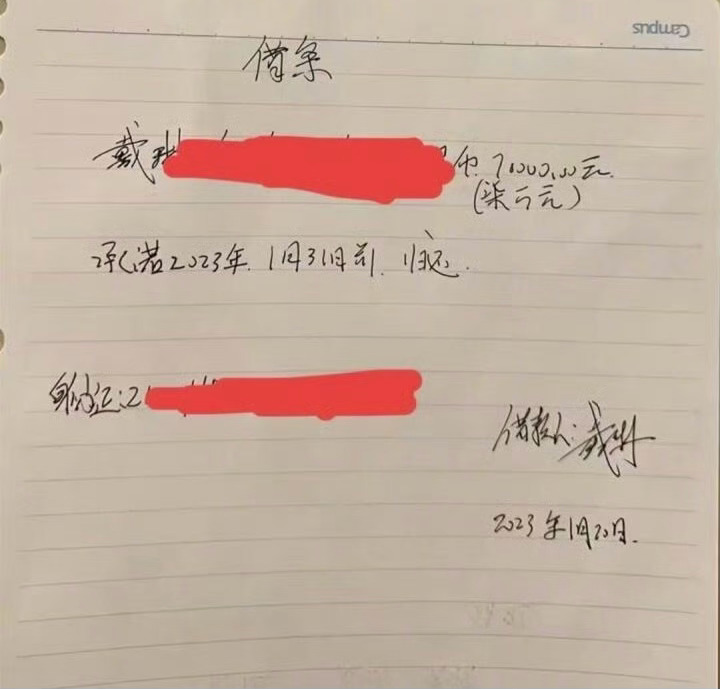 Campus
借条
戴 币 71000.00元
(柒万元)
承诺2023年1月31日前归还.
身份证:2
借款人:戴琳
2023年1月20日.